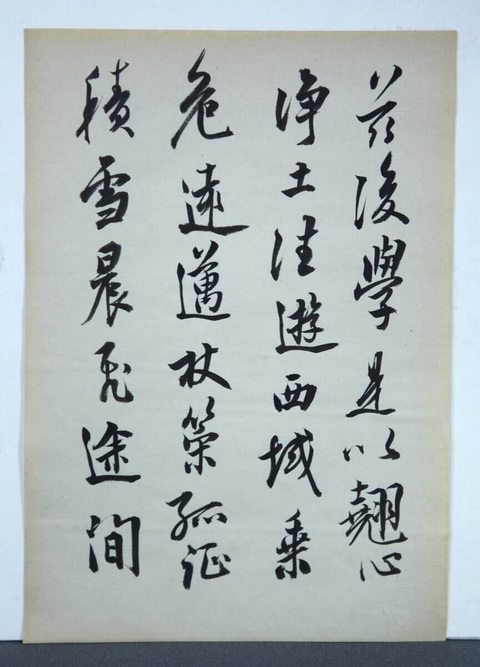 茲後學是以翹心
淨土往遊西域乗
危遠邁杖策孤征
積雪晨飛途間